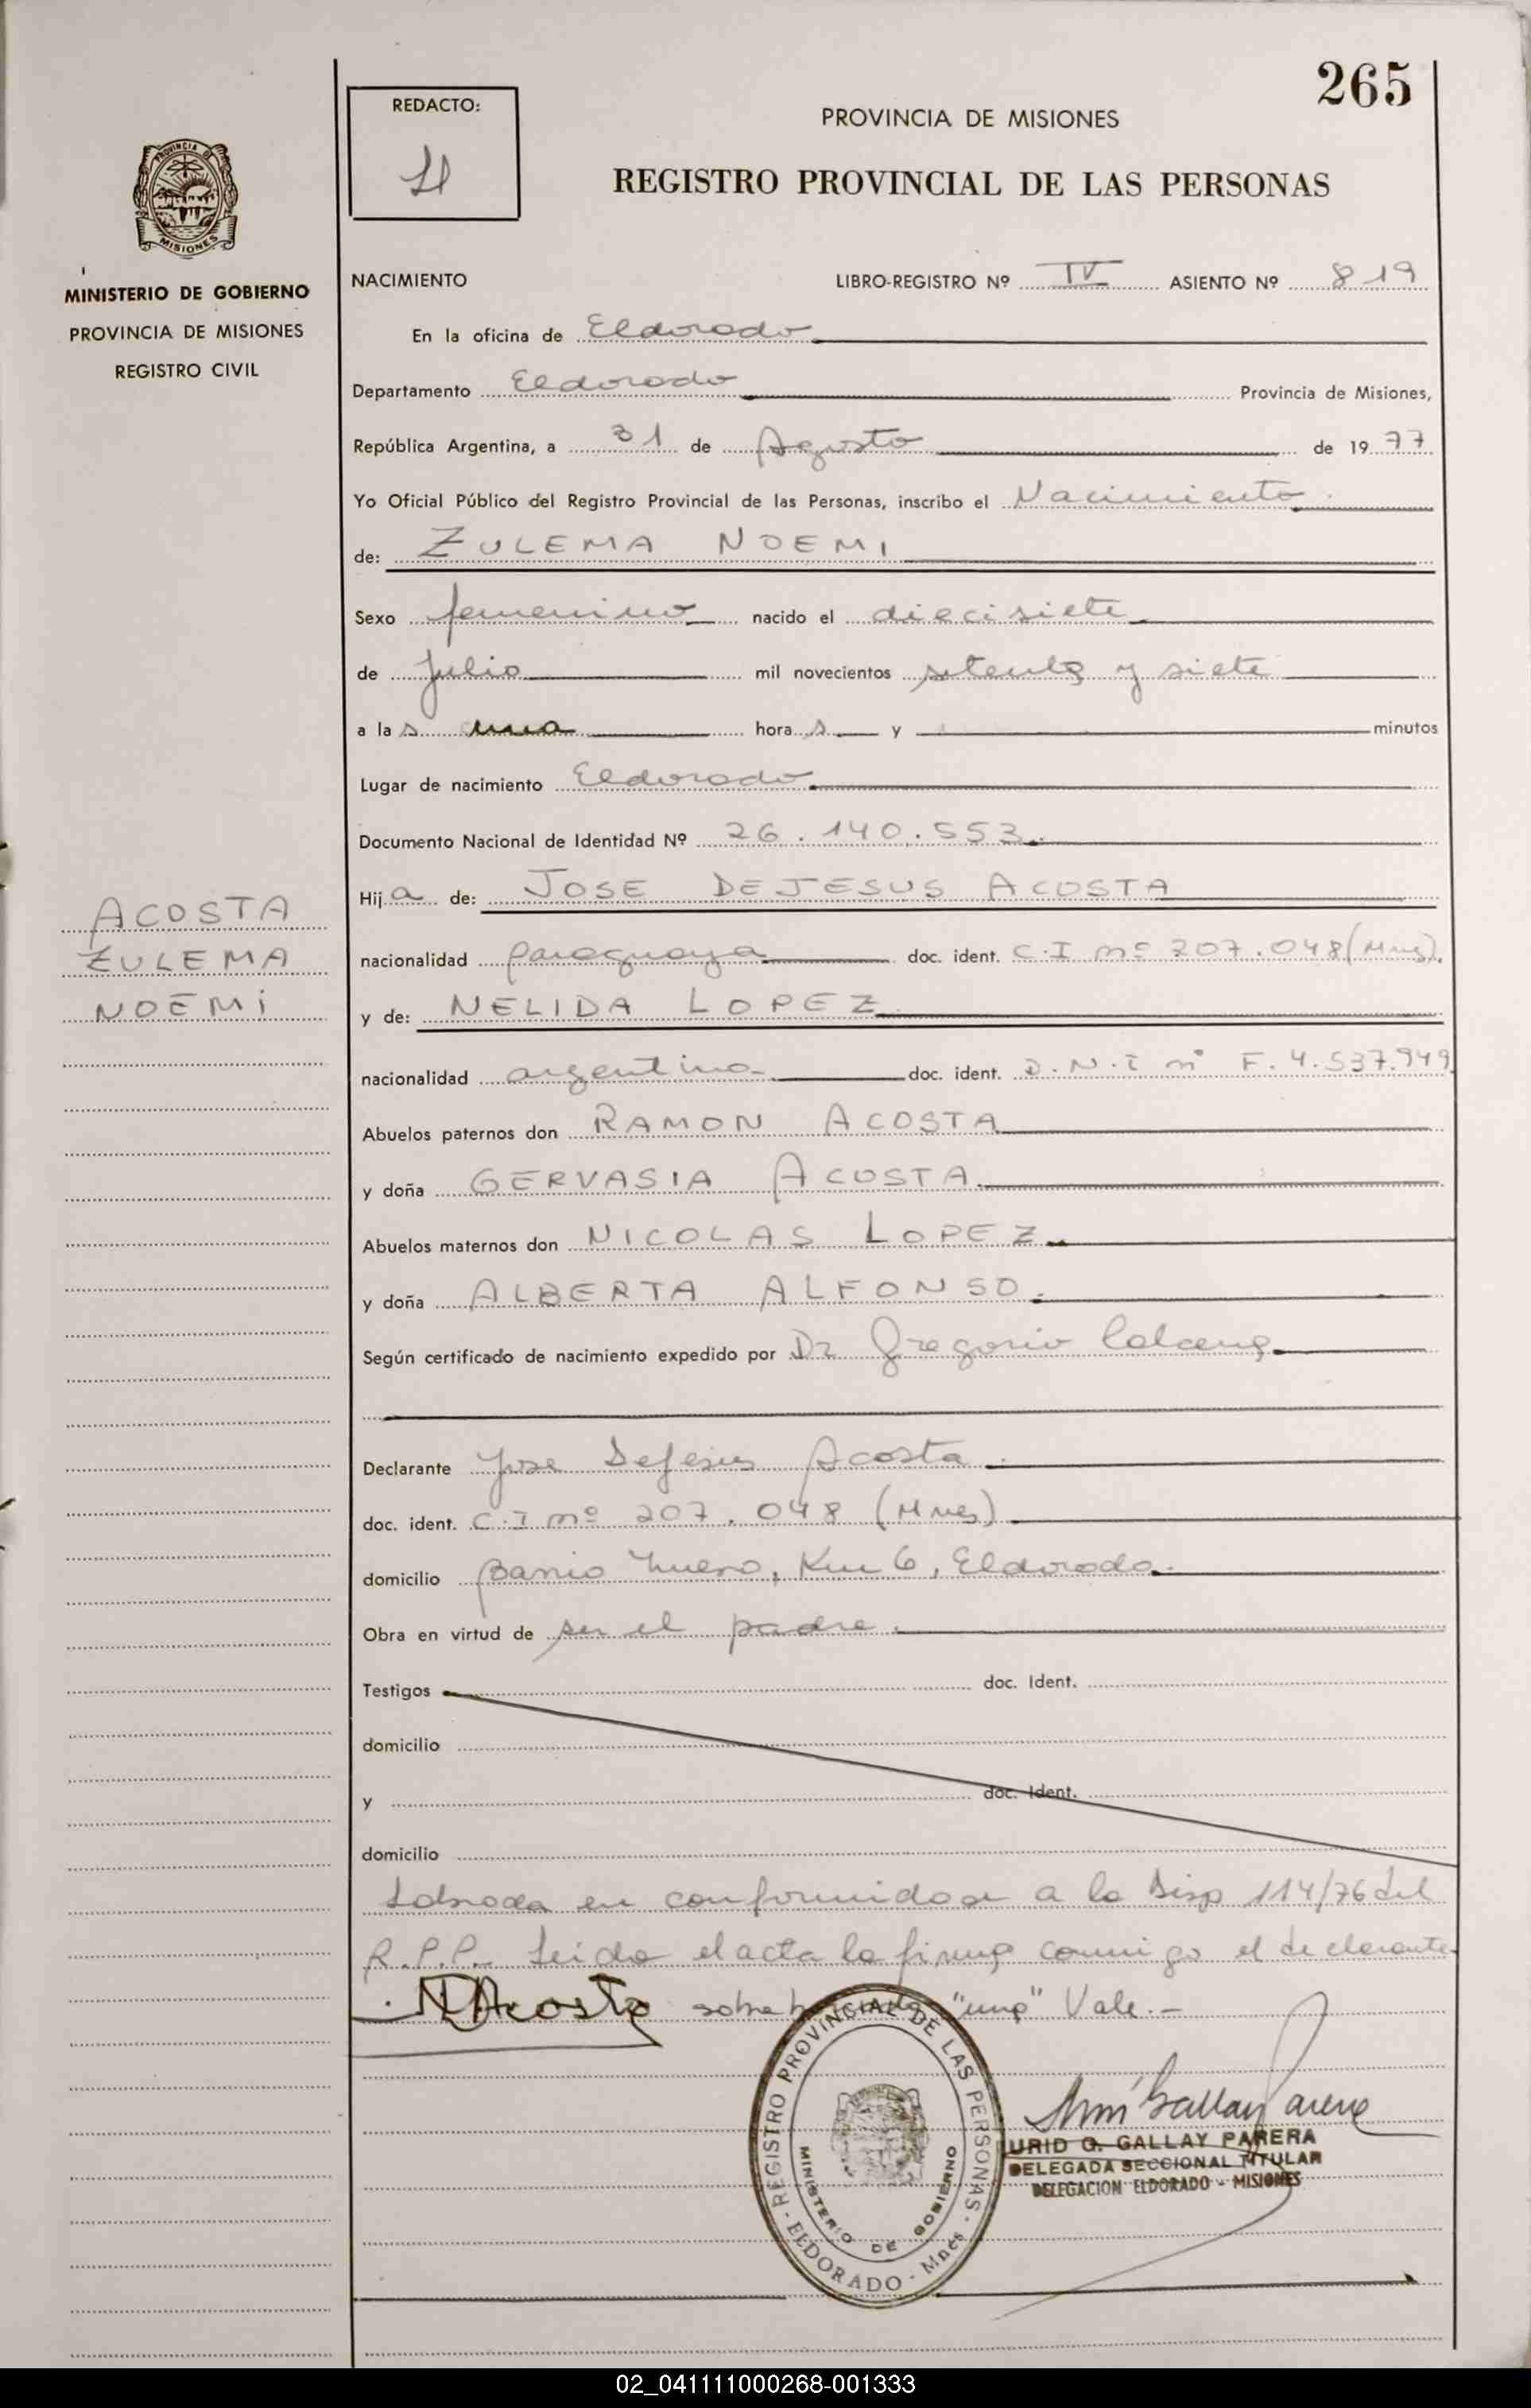 265
REDACTO:
PROVINCIA DE MISIONES
REGISTRO PROVINCIAL DE LAS PERSONAS
PROVINCIA DE
MISIONES
MINISTERIO DE GOBIERNO
PROVINCIA DE MISIONES
REGISTRO CIVIL
NACIMIENTO LIBRO-REGISTRO Nº IV ASIENTO Nº 819
En la oficina de Eldorado
Departamento Eldorado Provincia de Misiones,
República Argentina, a 31 de Agosto de 1977
Yo Oficial Público del Registro Provincial de las Personas, inscribo el Nacimiento
de: ZULEMA NOEMI
Sexo femenino nacido el diecisiete
de Julio mil novecientos setenta y siete
a las una horas y minutos
Lugar de nacimiento Eldorado
Documento Nacional de Identidad Nº 26.140.553.
Hija de: JOSE DEJESUS ACOSTA
ACOSTA
ZULEMA
NOEMI
nacionalidad paraguaya doc. ident. C.I nº 207.048 (Mnes).
y de: NELIDA LOPEZ
nacionalidad argentina doc. ident. D.N.I nº F. 4.537.949
Abuelos paternos don RAMON ACOSTA
y doña GERVASIA ACOSTA
Abuelos maternos don NICOLAS LOPEZ
y doña ALBERTA ALFONSO
Según certificado de nacimiento expedido por Dr Gregorio
Declarante Jose Dejesus Acosta
doc. ident. C.I nº 207.048 (Mnes)
domicilio Barrio Nuevo, Km 6, Eldorado
Obra en virtud de ser el padre
Testigos doc. Ident.
domicilio
y doc. Ident.
domicilio
Labrada en conformidad a la Disp 114/76 del
R.P.P. Leida el acta la firma conmigo el declarante
Acosta sobre "una" Vale.-
REGISTRO PROVINCIAL DE LAS PERSONAS - ELDORADO - Mnes
MINISTERIO DE GOBIERNO
Gallay Parera
URID G. GALLAY PARERA
DELEGADA SECCIONAL TITULAR
DELEGACION ELDORADO - MISIONES
02_041111000268-001333